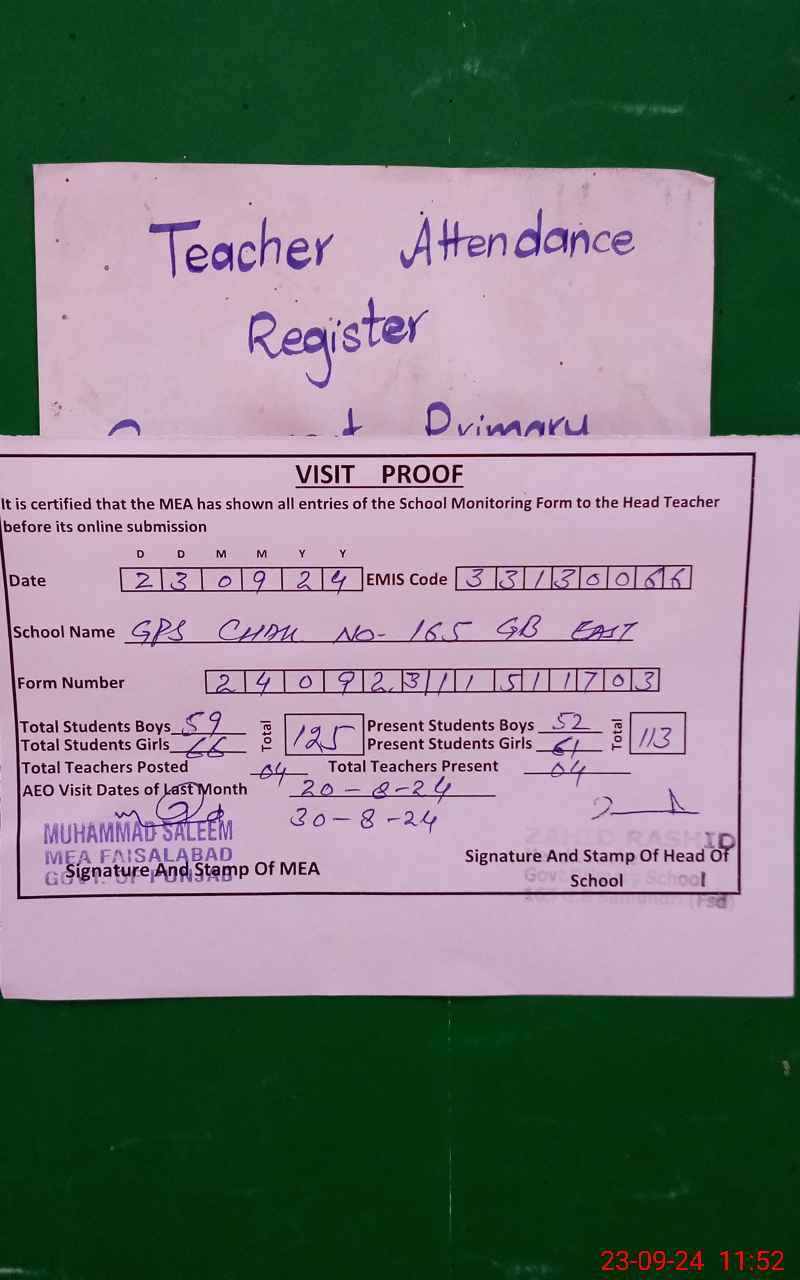 Teacher Attendance
Register
Primary
VISIT PROOF
It is certified that the MEA has shown all entries of the School Monitoring Form to the Head Teacher
before its online submission
D D M M Y Y
Date 2 3 0 9 2 4 EMIS Code 3 3 1 3 0 0 6 6
School Name GPS CHAK NO- 165 GB EAST
Form Number 2 4 0 9 2 3 1 1 1 5 1 1 1 7 0 3
Total Students Boys 59 Total 125 Present Students Boys 52 Total 113
Total Students Girls 66 Present Students Girls 61
Total Teachers Posted 04 Total Teachers Present 04
AEO Visit Dates of Last Month 20-8-24
30-8-24
MUHAMMAD SALEEM
MEA FAISALABAD
GOVT. OF PUNJAB
Signature And Stamp Of MEA
ZAHID RASHID
Signature And Stamp Of Head Of
School
Govt. School
(Fsd)
23-09-24 11:52